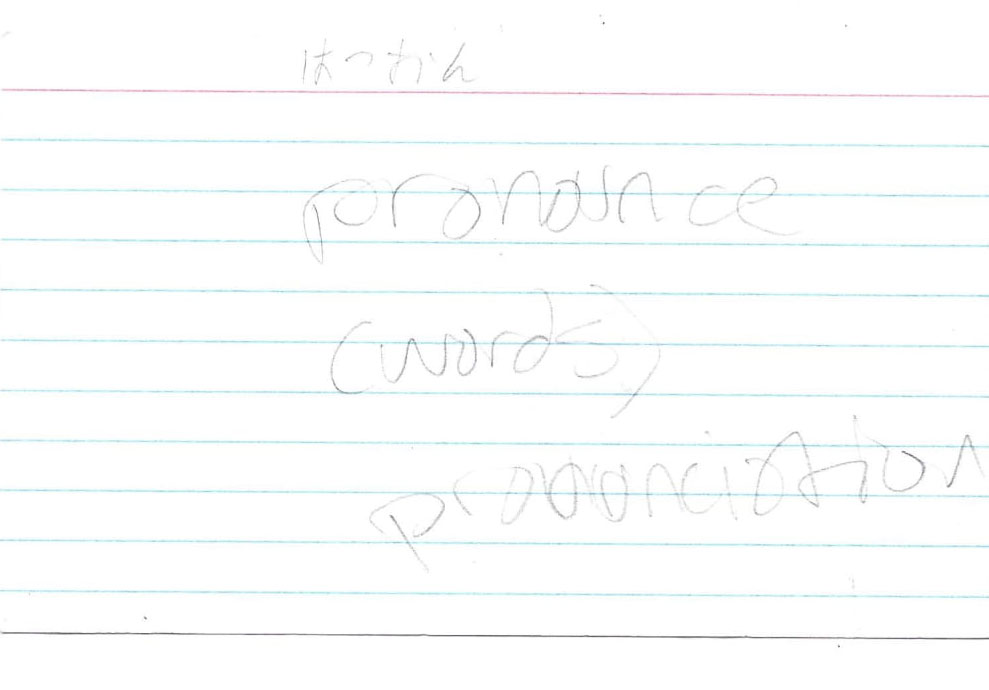 はつおん
pronounce
(words)
pronunciation